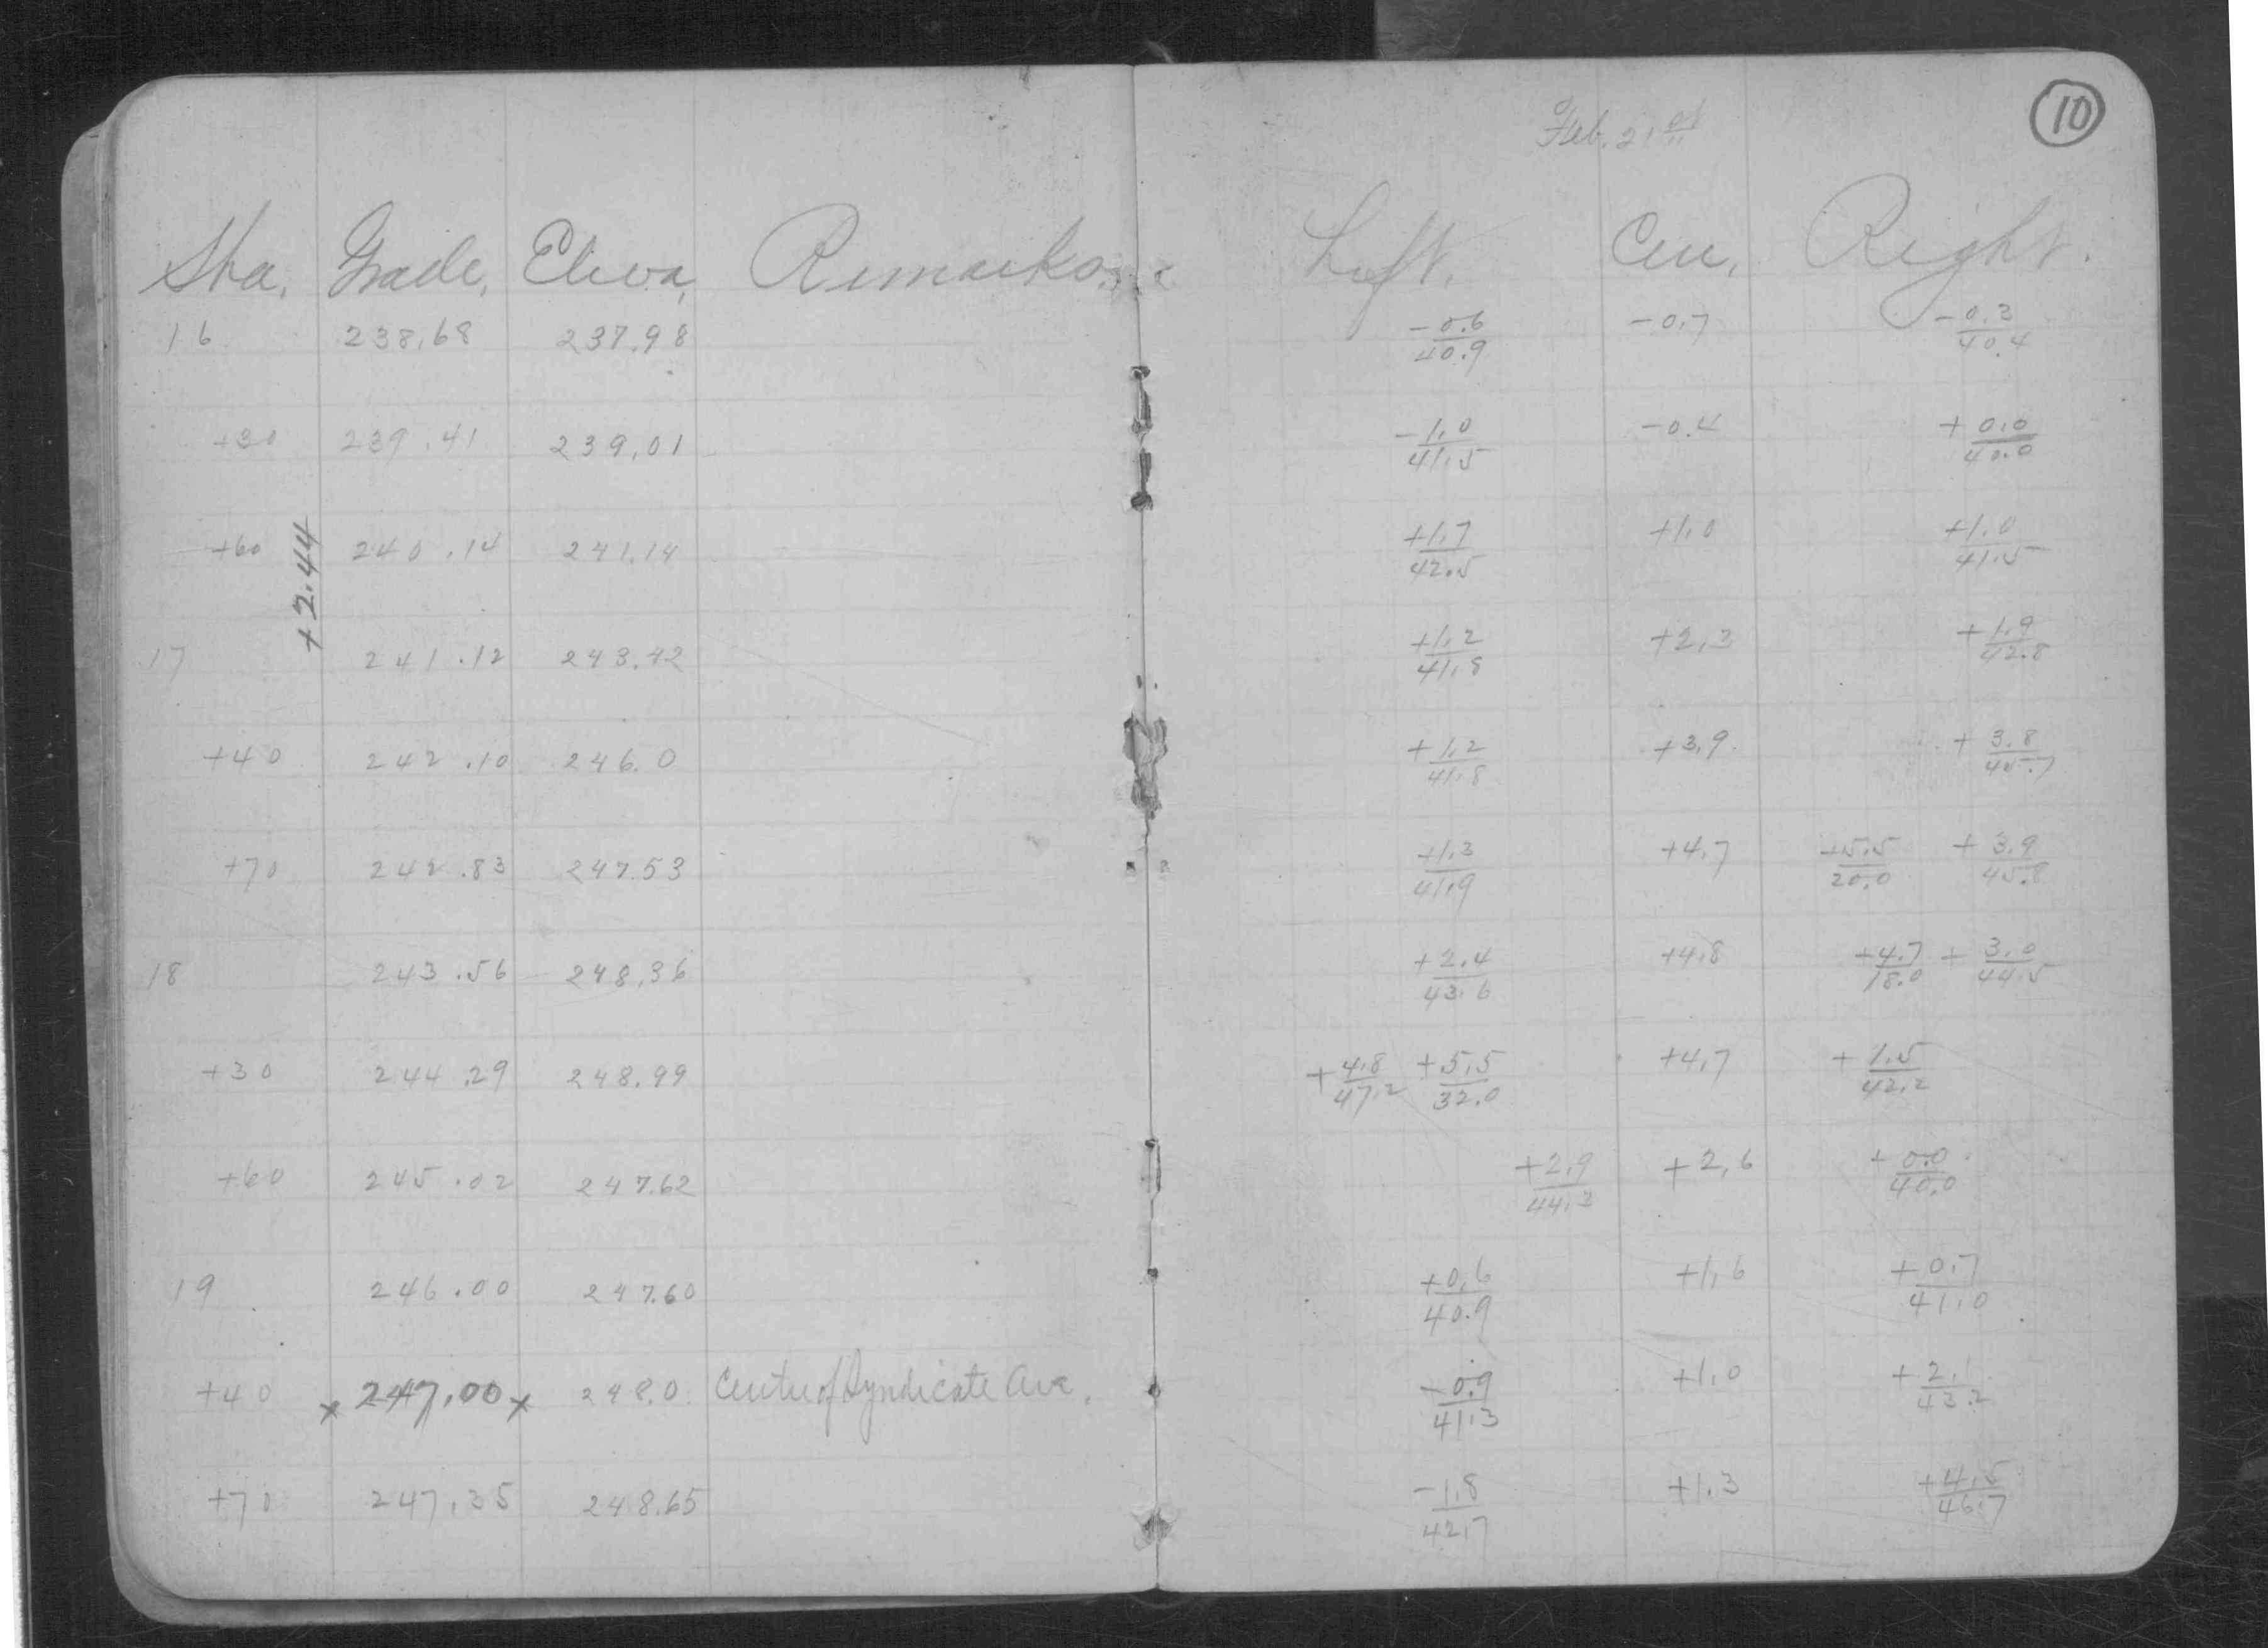 10
Feb. 21st
Sta. Grade, Eleva, Remarks. Left. Cen, Right.
16 238.68 237.98 -0.6/40.9 -0.7 -0.3/40.4
+30 239.41 239.01 -1.0/41.5 -0.4 +0.0/40.0
+2.44
+60 240.14 241.14 +1.7/42.5 +1.0 +1.0/41.5
17 241.12 243.42 +1.2/41.8 +2.3 +1.9/42.8
+40 242.10 246.0 +1.2/41.8 +3.9 +3.8/45.7
+70 242.83 247.53 +1.3/41.9 +4.7 +5.5/20.0 +3.9/45.8
18 243.56 248.36 +2.4/43.6 +4.8 +4.7/18.0 +3.0/44.5
+30 244.29 248.99 +4.8/47.2 +5.5/32.0 +4.7 +1.5/42.2
+60 245.02 247.62 +2.9/44.3 +2.6 +0.0/40.0
19 246.00 247.60 +0.6/40.9 +1.6 +0.7/41.0
+40 x 247.00 x 248.0 Centre of Syndicate Ave. -0.9/41.3 +1.0 +2.1/43.2
+70 247.35 248.65 -1.8/42.7 +1.3 +4.5/46.7